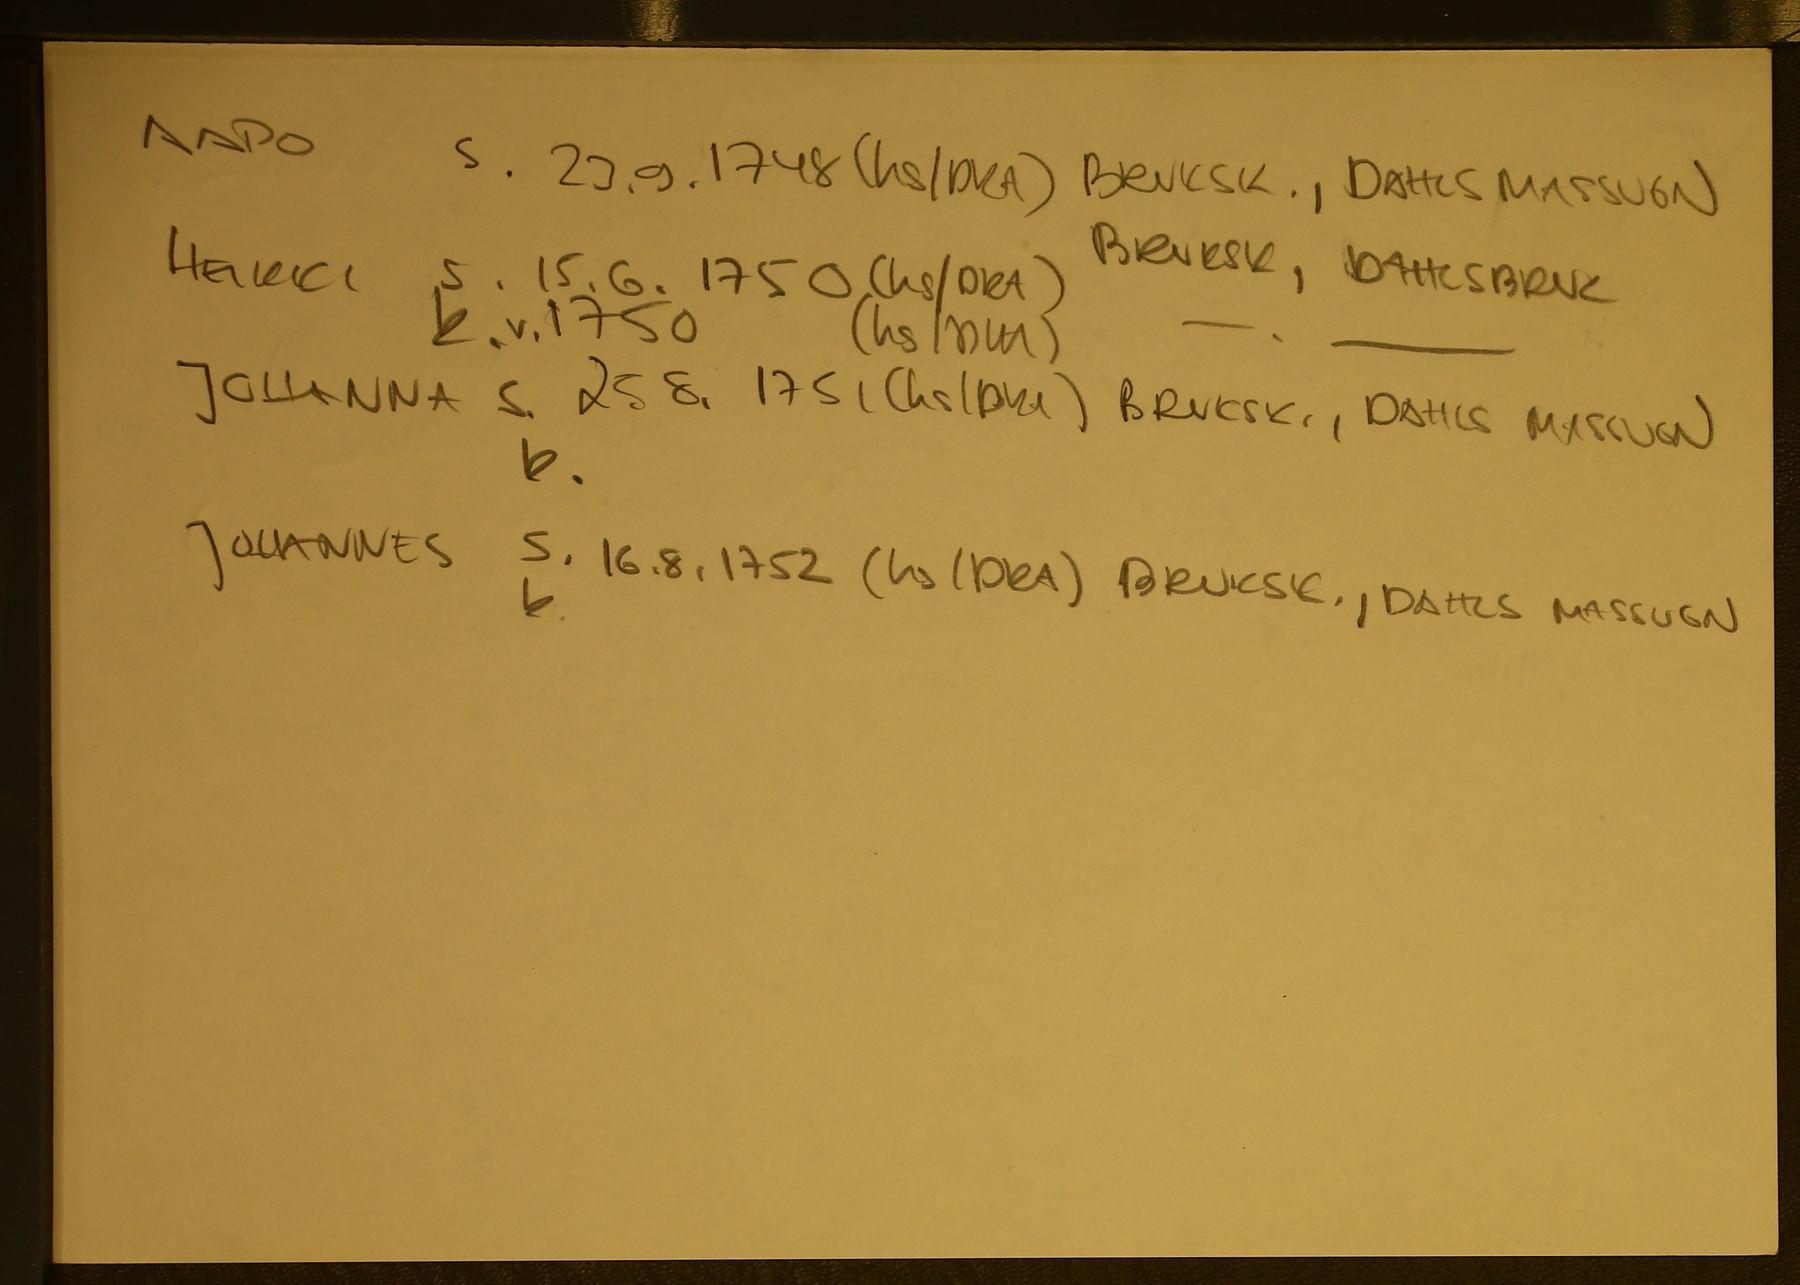 AAPO s. 23.9.1748 (hs/DKA) BRUKSK., DAHLS MASSUGN
HEIKKI s. 15.6.1750 (hs/DKA) BRUKSK, DAHLSBRUK
k.v.1750 (hs/DKA) —. —
JOHANNA s. 25 8. 1751 (hs/DKA) BRUKSK., DAHLS MASSUGN
k.
JOHANNES s. 16.8.1752 (hs/DKA) BRUKSK., DAHLS MASSUGN
k.